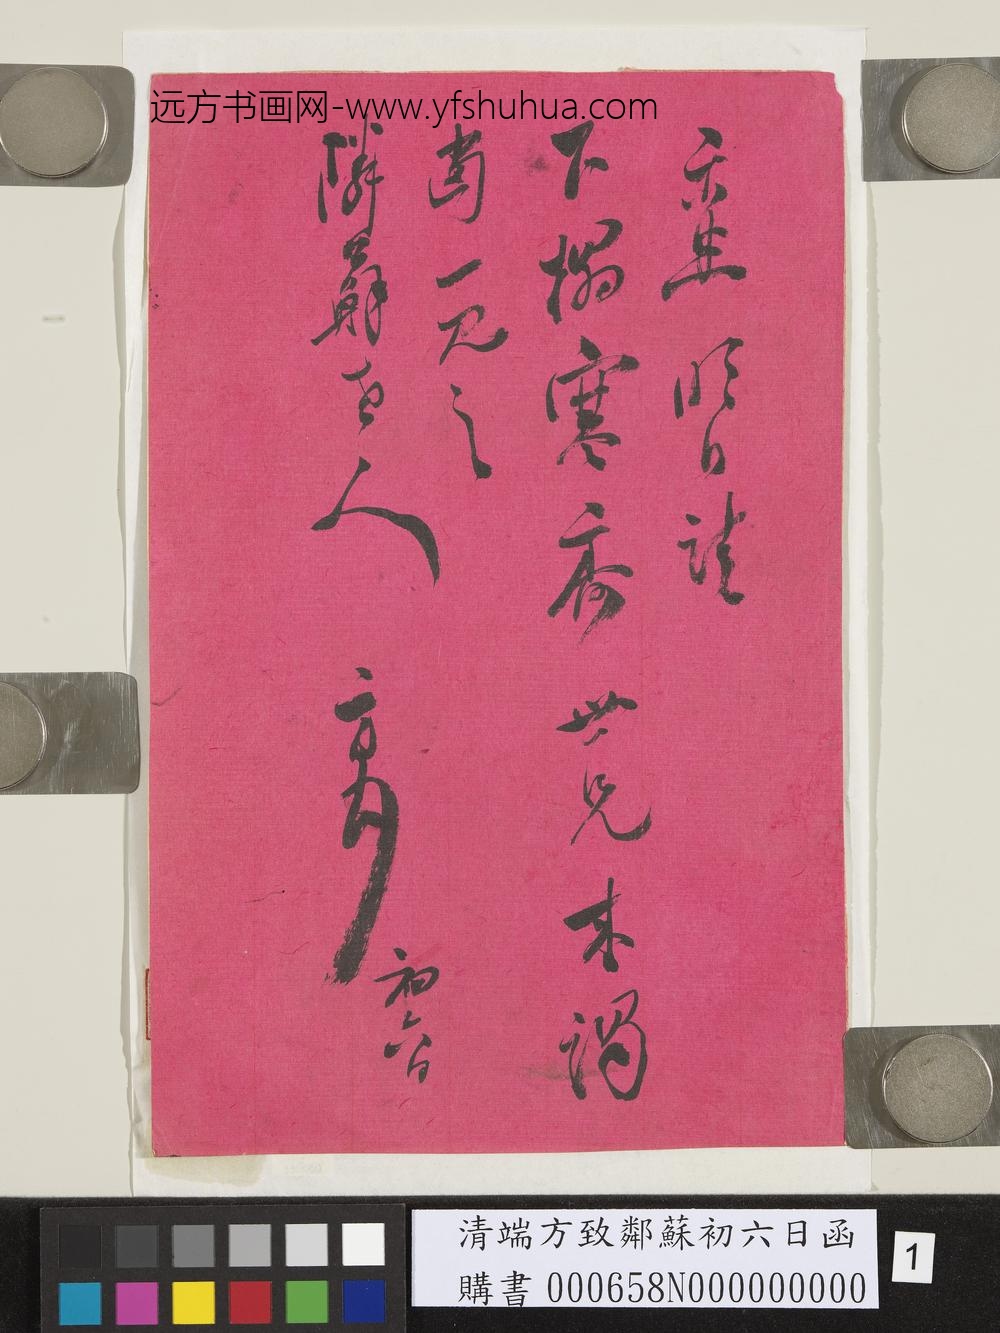 远方书画网-www.yfshuhua.com
示悉明日請
下榻寒齋世兄來謁
當一見之
鄰蘇老人
方
初六日
清端方致鄰蘇初六日函
購書 000658N000000000
1